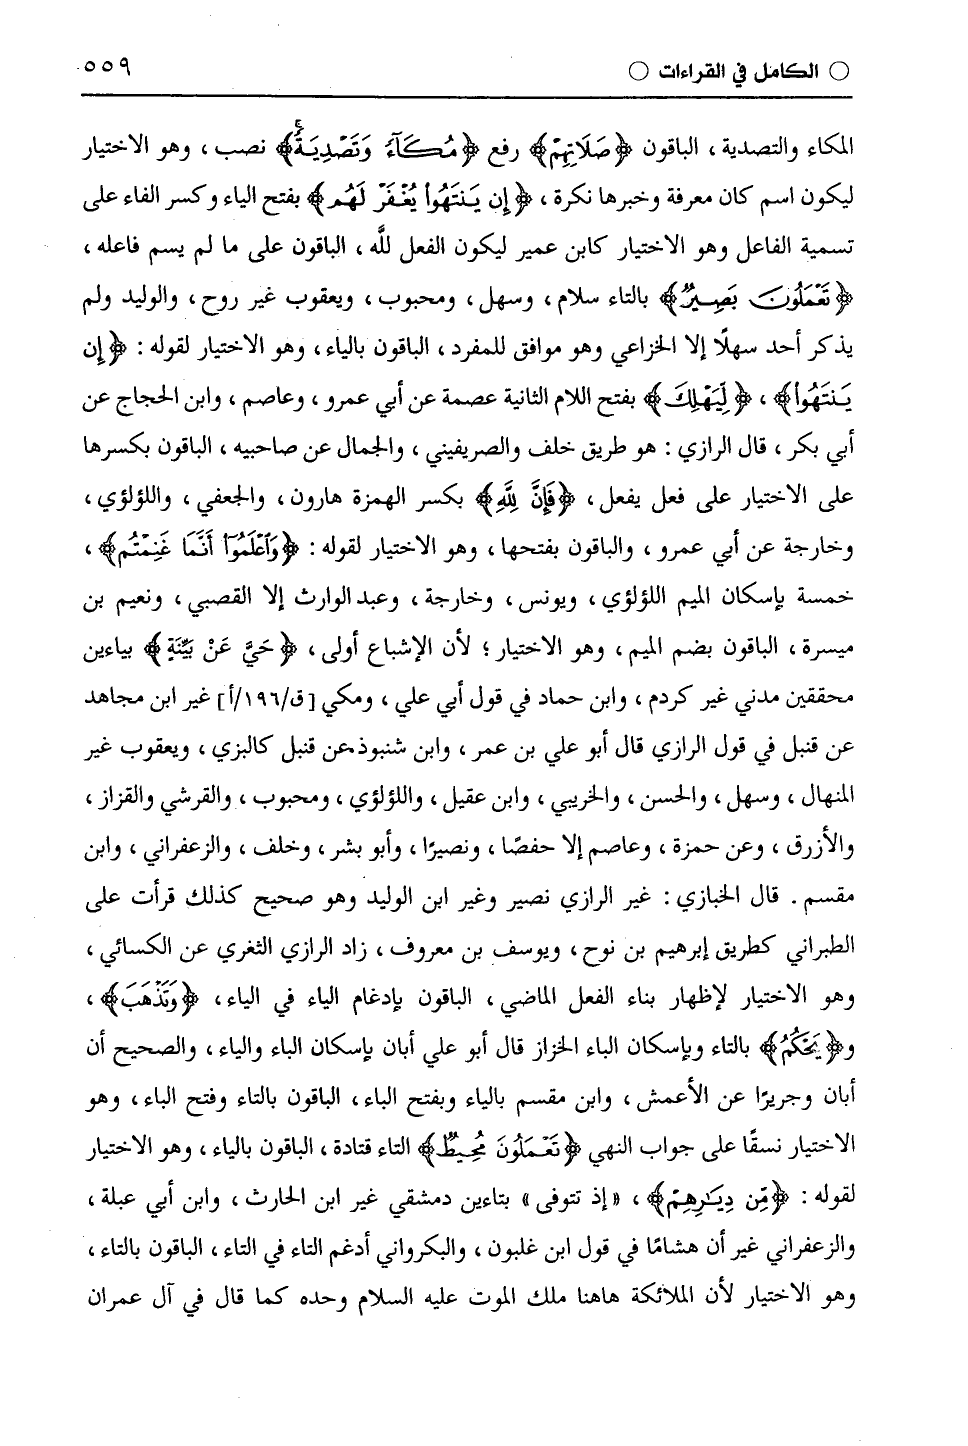 ○ الكامل في القراءات ○ ٥٥٩
المكاء والتصدية ، الباقون ﴿صَلَاتِهِمْ﴾ رفع ﴿مُكَآءً وَتَصْدِيَةً﴾ نصب ، وهو الاختيار
ليكون اسم كان معرفة وخبرها نكرة ، ﴿إِن يَنتَهُوا۟ يُغْفَرْ لَهُم﴾ بفتح الياء وكسر الفاء على
تسمية الفاعل وهو الاختيار كابن عمير ليكون الفعل للَّه ، الباقون على ما لم يسم فاعله ،
﴿تَعْمَلُونَ بَصِيرٌ﴾ بالتاء سلام ، وسهل ، ومحبوب ، ويعقوب غير روح ، والوليد ولم
يذكر أحد سهلًا إلا الخزاعي وهو موافق للمفرد ، الباقون بالياء ، وهو الاختيار لقوله : ﴿إِن
يَنتَهُوا۟﴾ ، ﴿لِّيَهْلِكَ﴾ بفتح اللام الثانية عصمة عن أبي عمرو ، وعاصم ، وابن الحجاج عن
أبي بكر ، قال الرازي : هو طريق خلف والصريفيني ، والجمال عن صاحبيه ، الباقون بكسرها
على الاختيار على فعل يفعل ، ﴿فَإِنَّ لِلَّهِ﴾ بكسر الهمزة هارون ، والجعفي ، واللؤلؤي ،
وخارجة عن أبي عمرو ، والباقون بفتحها ، وهو الاختيار لقوله : ﴿وَٱعْلَمُوٓا۟ أَنَّمَا غَنِمْتُم﴾ ،
خمسة بإسكان الميم اللؤلؤي ، ويونس ، وخارجة ، وعبد الوارث إلا القصبي ، ونعيم بن
ميسرة ، الباقون بضم الميم ، وهو الاختيار ؛ لأن الإشباع أولى ، ﴿حَيَّ عَنْ بَيِّنَةٍ﴾ بياءين
محققين مدني غير كردم ، وابن حماد في قول أبي علي ، ومكي [ق/١٩٦/أ] غير ابن مجاهد
عن قنبل في قول الرازي قال أبو علي بن عمر ، وابن شنبوذ عن قنبل كالبزي ، ويعقوب غير
المنهال ، وسهل ، والحسن ، والخريبي ، وابن عقيل ، واللؤلؤي ، ومحبوب ، والقرشي والقزاز ،
والأزرق ، وعن حمزة ، وعاصم إلا حفصًا ، ونصيرًا ، وأبو بشر ، وخلف ، والزعفراني ، وابن
مقسم . قال الخبازي : غير الرازي نصير وغير ابن الوليد وهو صحيح كذلك قرأت على
الطبراني كطريق إبرهيم بن نوح ، ويوسف بن معروف ، زاد الرازي الثغري عن الكسائي ،
وهو الاختيار لإظهار بناء الفعل الماضي ، الباقون بإدغام الياء في الياء ، ﴿وَتَذْهَبَ﴾ ،
و﴿يَحْكُمُ﴾ بالتاء وبإسكان الباء الخزاز قال أبو علي أبان بإسكان الباء والياء ، والصحيح أن
أبان وجريرًا عن الأعمش ، وابن مقسم بالياء وبفتح الباء ، الباقون بالتاء وفتح الباء ، وهو
الاختيار نسقًا على جواب النهي ﴿تَعْمَلُونَ مُحِيطٌ﴾ التاء قتادة ، الباقون بالياء ، وهو الاختيار
لقوله : ﴿مِّن دِيَٰرِهِمْ﴾ ، « إذ تتوفى » بتاءين دمشقي غير ابن الحارث ، وابن أبي عبلة ،
والزعفراني غير أن هشامًا في قول ابن غلبون ، والبكرواني أدغم التاء في التاء ، الباقون بالتاء ،
وهو الاختيار لأن الملائكة هاهنا ملك الموت عليه السلام وحده كما قال في آل عمران